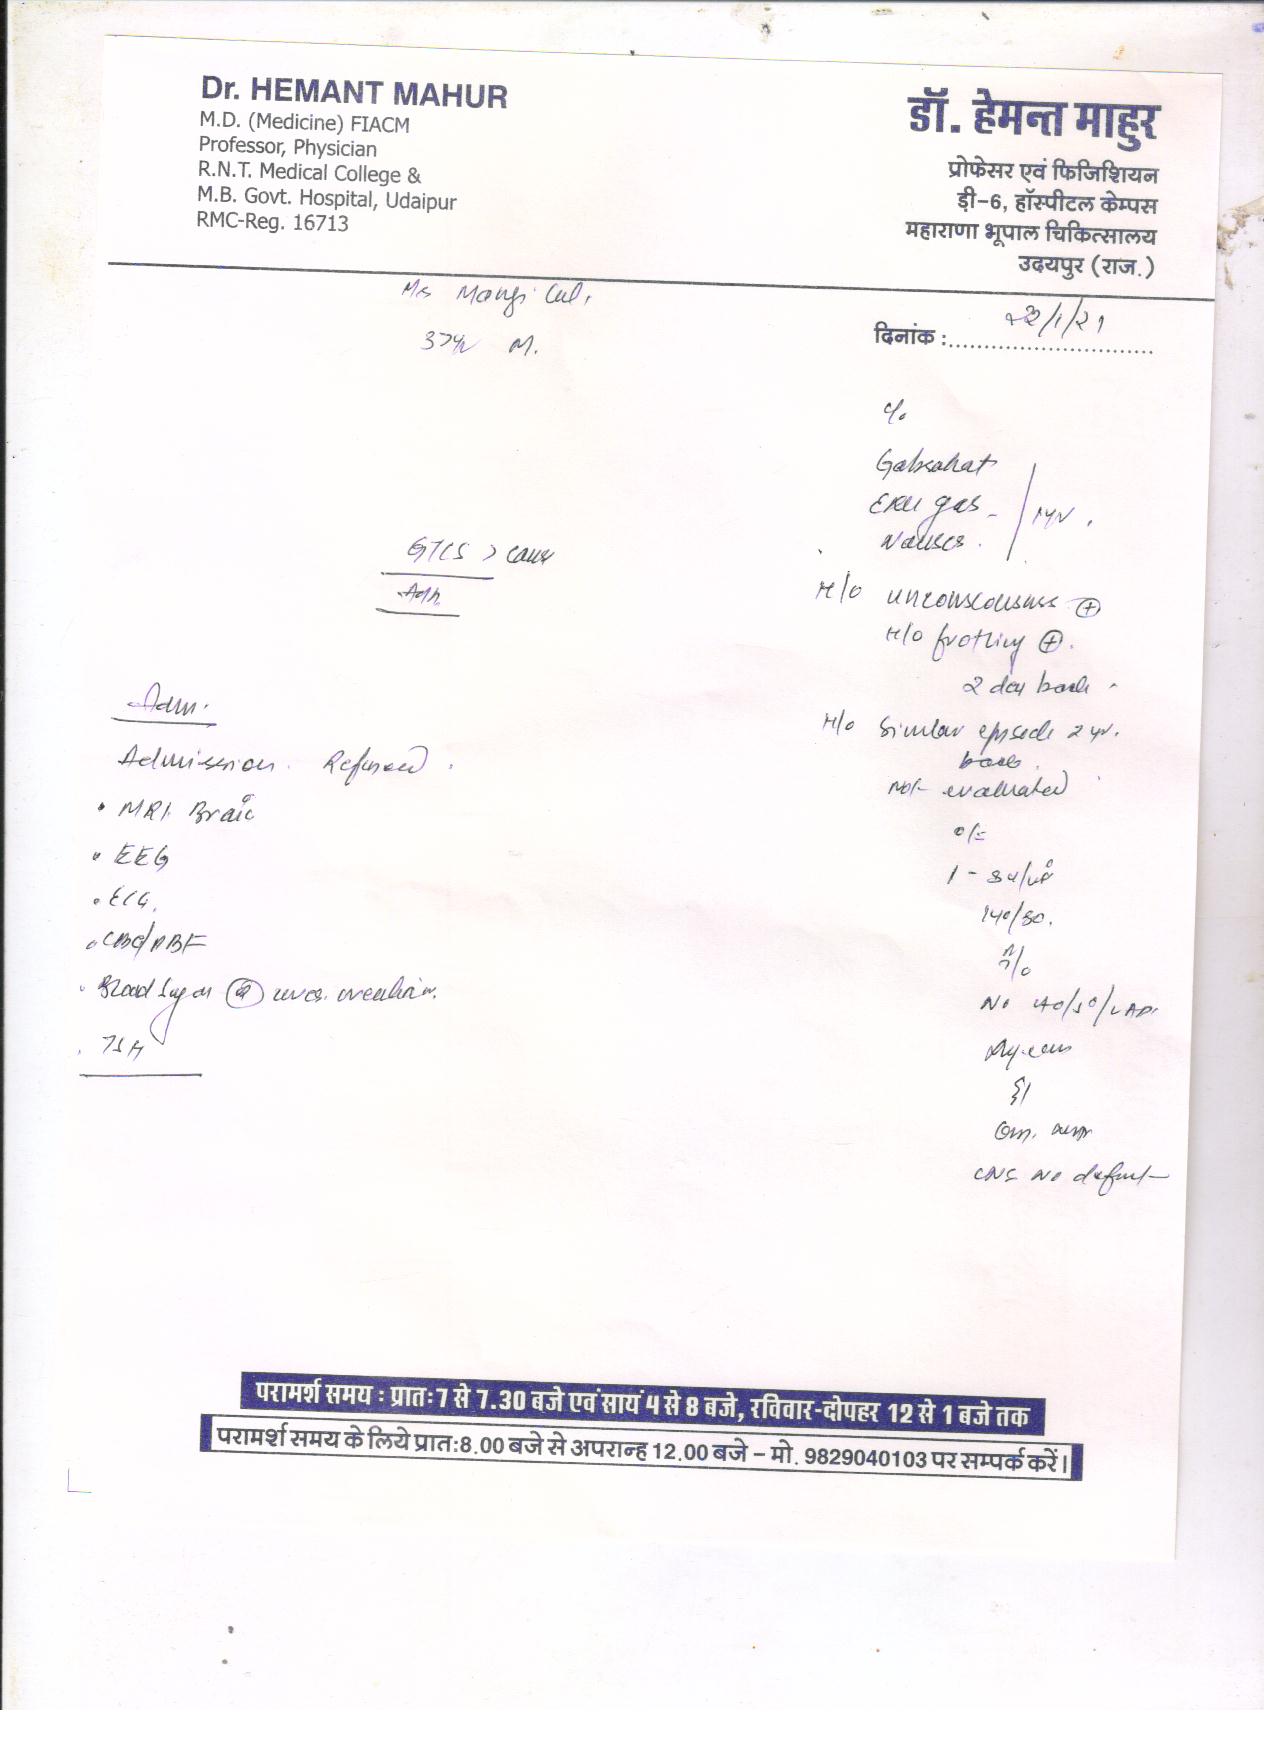 Dr. HEMANT MAHUR
M.D. (Medicine) FIACM
Professor, Physician
R.N.T. Medical College &
M.B. Govt. Hospital, Udaipur
RMC-Reg. 16713
डॉ. हेमन्त माहुर
प्रोफेसर एवं फिजिशियन
डी-6, हॉस्पीटल केम्पस
महाराणा भूपाल चिकित्सालय
उदयपुर (राज.)
दिनांक : 22/1/21
37yr M.
c/o
Gabrahat
gas
Nausea
GTCS > cause
Adm
H/o unconsciousness ⊕
H/o frothing ⊕
2 day back
H/o Similar episode 2 yr.
back
Not evaluated
o/E
140/80.
CNS No deficit
Adm.
Admission Refused
• MRI Brain
• EEG
• ECG
• CBC/PBF
• Blood Sugar
• TSH
परामर्श समय : प्रातः 7 से 7.30 बजे एवं सायं 4 से 8 बजे, रविवार-दोपहर 12 से 1 बजे तक
परामर्श समय के लिये प्रातः 8.00 बजे से अपरान्ह 12.00 बजे – मो. 9829040103 पर सम्पर्क करें।